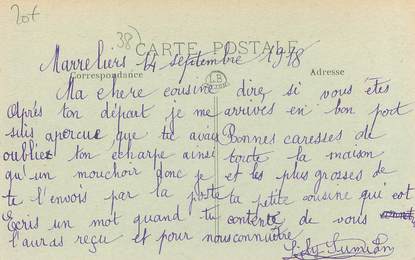 20f
38)
CARTE POSTALE
Marreliers 14 septembre 1918
Correspondance
Adresse
LB
Ma chere cousine
Après ton départ je me
suis apercue que tu avais
oubliez ton écharpe ainsi
qu'un mouchoir donc je
te l'envois par la poste
Ecris un mot quand tu
l'auras reçu et pour nous
dire si vous êtes
arrivés en bon port
Bonnes caresses de
toute la maison
et les plus grosses de
ta petite cousine qui est
contente de vous
connaître